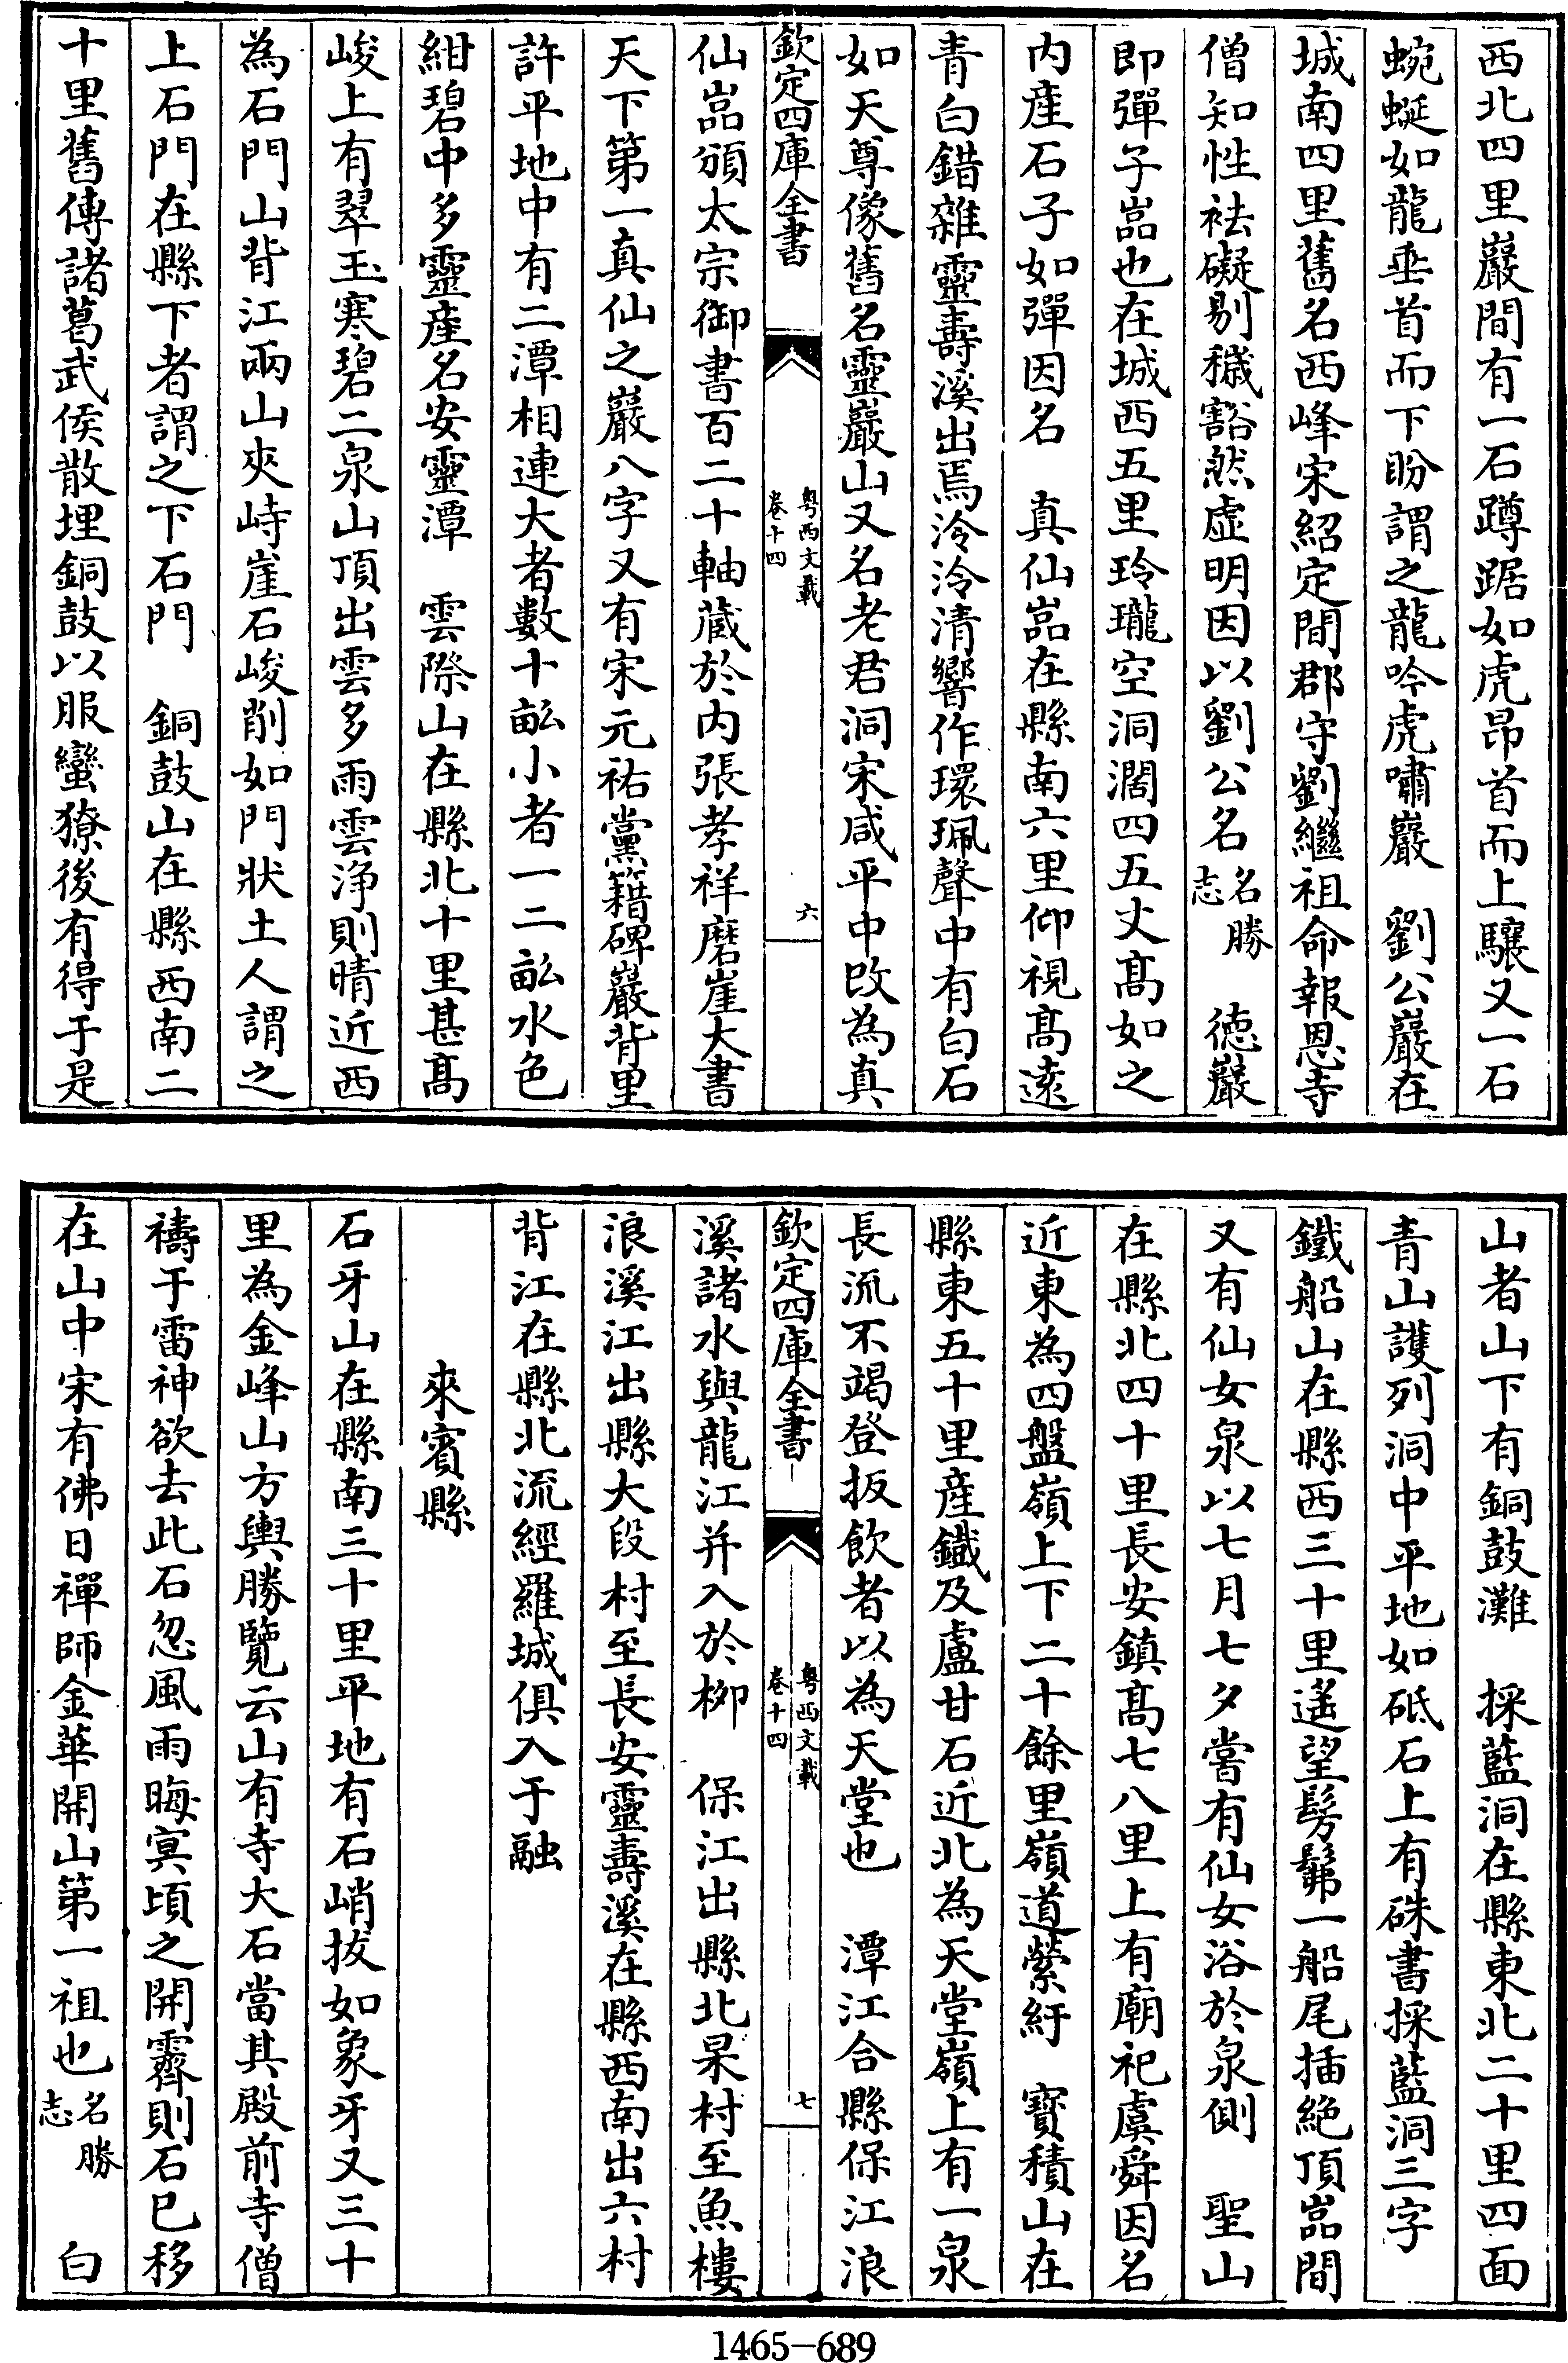 西北四里巖間有一石蹲踞如虎昂首而上驤又一石
蜿蜒如龍垂首而下盼謂之龍吟虎嘯巖　劉公巖在
城南四里舊名西峰宋紹定間郡守劉繼祖命報恩寺
僧知性袪礙剔穢豁然虛明因以劉公名名勝志　德巖
即彈子嵓也在城西五里玲瓏空洞濶四五丈髙如之
内産石子如彈因名　真仙嵓在縣南六里仰視髙逺
青白錯雜靈壽溪出焉泠泠清響作環珮聲中有白石
如天尊像舊名靈巖山又名老君洞宋咸平中改為真
欽定四庫全書
粤西文載
卷十四
六
仙嵓頒太宗御書百二十軸藏於内張孝祥磨崖大書
天下第一真仙之巖八字又有宋元祐黨籍碑巖背里
許平地中有二潭相連大者數十畝小者一二畝水色
紺碧中多靈産名安靈潭　雲際山在縣北十里甚髙
峻上有翠玉寒碧二泉山頂出雲多雨雲浄則晴近西
為石門山背江兩山夾峙崖石峻削如門狀土人謂之
上石門在縣下者謂之下石門　銅鼓山在縣西南二
十里舊傳諸葛武侯散埋銅鼓以服蠻獠後有得于是
山者山下有銅鼓灘　採藍洞在縣東北二十里四面
青山護列洞中平地如砥石上有硃書採藍洞三字
鐵船山在縣西三十里遥望髣髴一船尾插絶頂嵓間
又有仙女泉以七月七夕嘗有仙女浴於泉側　聖山
在縣北四十里長安鎮髙七八里上有廟祀虞舜因名
近東為四盤嶺上下二十餘里嶺道縈紆　寳積山在
縣東五十里産鐵及盧甘石近北為天堂嶺上有一泉
長流不竭登扳飲者以為天堂也　潭江合縣保江浪
欽定四庫全書
粤西文載
卷十四
七
溪諸水與龍江并入於栁　保江出縣北杲村至魚樓
浪溪江出縣大段村至長安靈壽溪在縣西南出六村
背江在縣北流經羅城俱入于融
來賓縣
石牙山在縣南三十里平地有石峭拔如象牙又三十
里為金峰山方輿勝覽云山有寺大石當其殿前寺僧
禱于雷神欲去此石忽風雨晦冥頃之開霽則石已移
在山中宋有佛日禪師金華開山第一祖也名勝志　白
1465-689